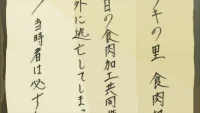 ノキの里 食肉
日の食肉加工共同
外に逃亡してしまっ
当時者は必ず